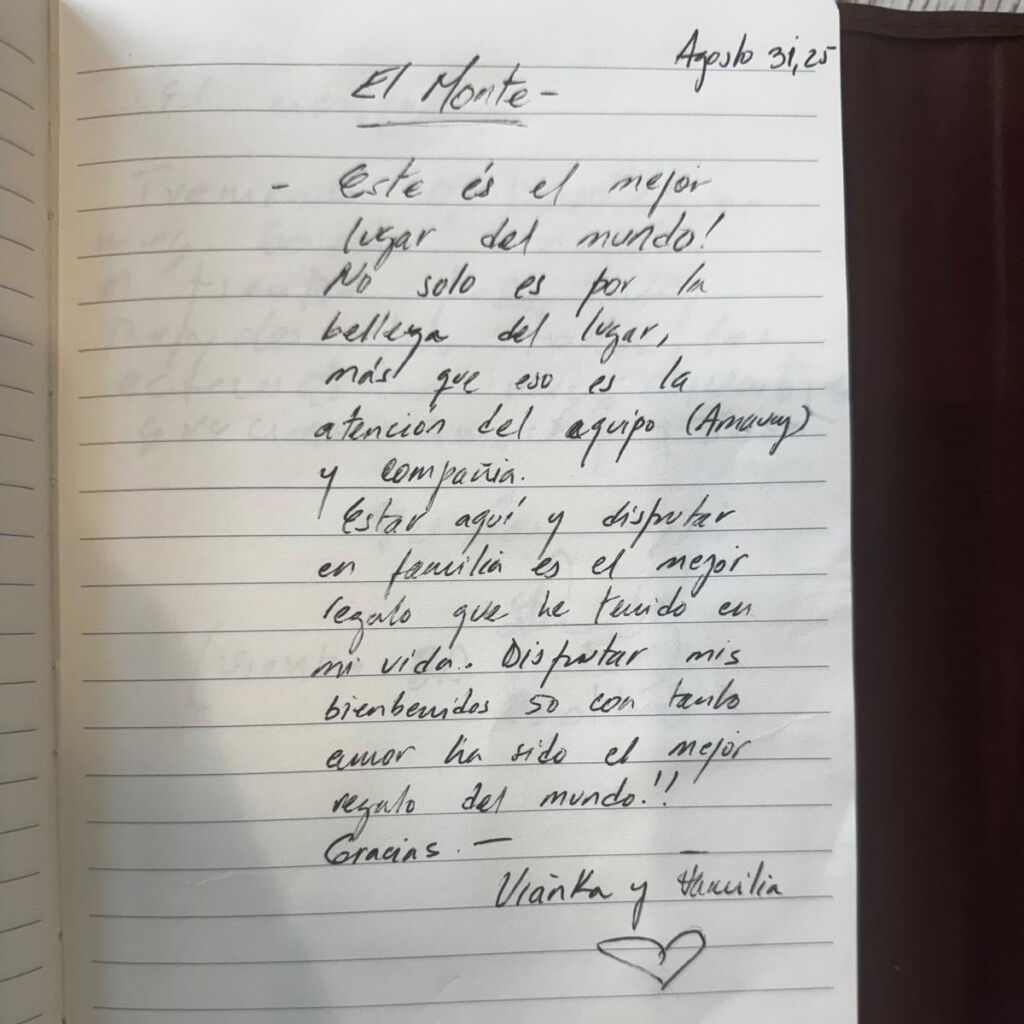 Agosto 31, 25
El Monte -
- Este és el mejor
lugar del mundo!
No solo es por la
belleza del lugar,
más que eso es la
atención del equipo (Amaury)
y compañia.
Estar aquí y disfrutar
en familia es el mejor
regalo que he tenido en
mi vida. Disfrutar mis
bienbenidos 50 con tanto
amor ha sido el mejor
regalo del mundo!!
Gracias. —
Vianka y Familia